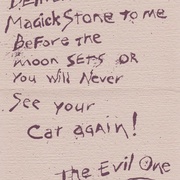 Magick Stone to me
Before the
moon SETS OR
You will Never
See your
Cat again!
The Evil One